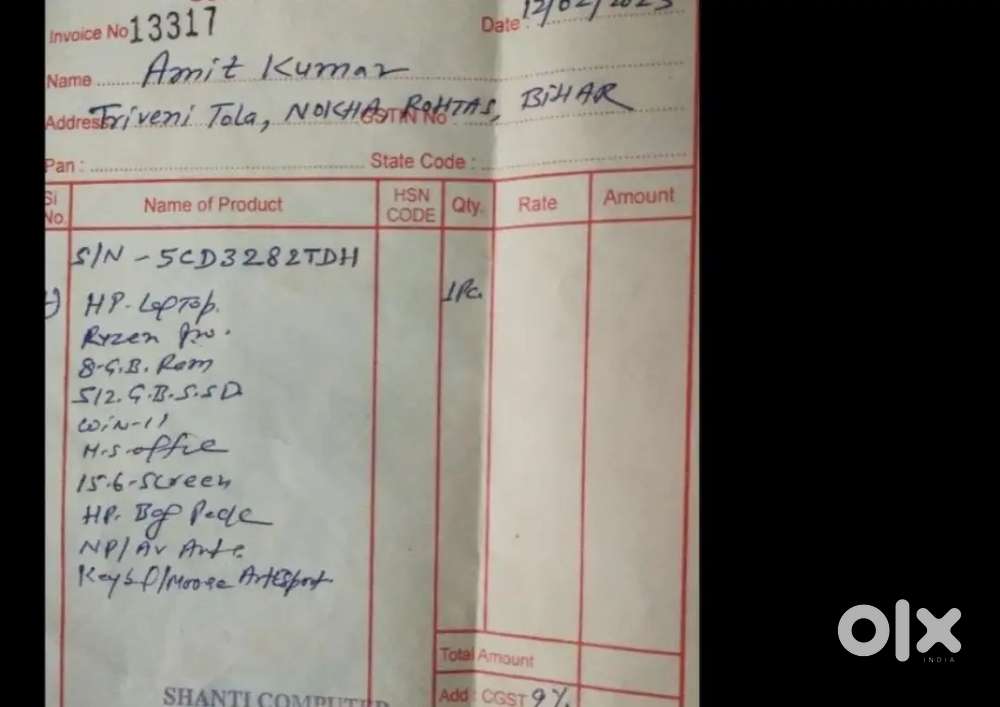 Invoice No 13317
Date : 12/02/2023
Name Amit Kumar
Address Triveni Tola, NOKHA, ROHTAS, BIHAR
GSTIN No
Pan : State Code :
Sl No. Name of Product HSN CODE Qty. Rate Amount
S/N - 5CD3282TDH
HP-Laptop. 1Pc.
Ryzen Pro.
8-G.B. Ram
512.G.B.S.SD
Win-11
M.S-office
15.6-Screen
HP. Bag
NP/AV
/Mouse
Total Amount
Add : CGST 9%
SHANTI COMPUTER
olx
INDIA